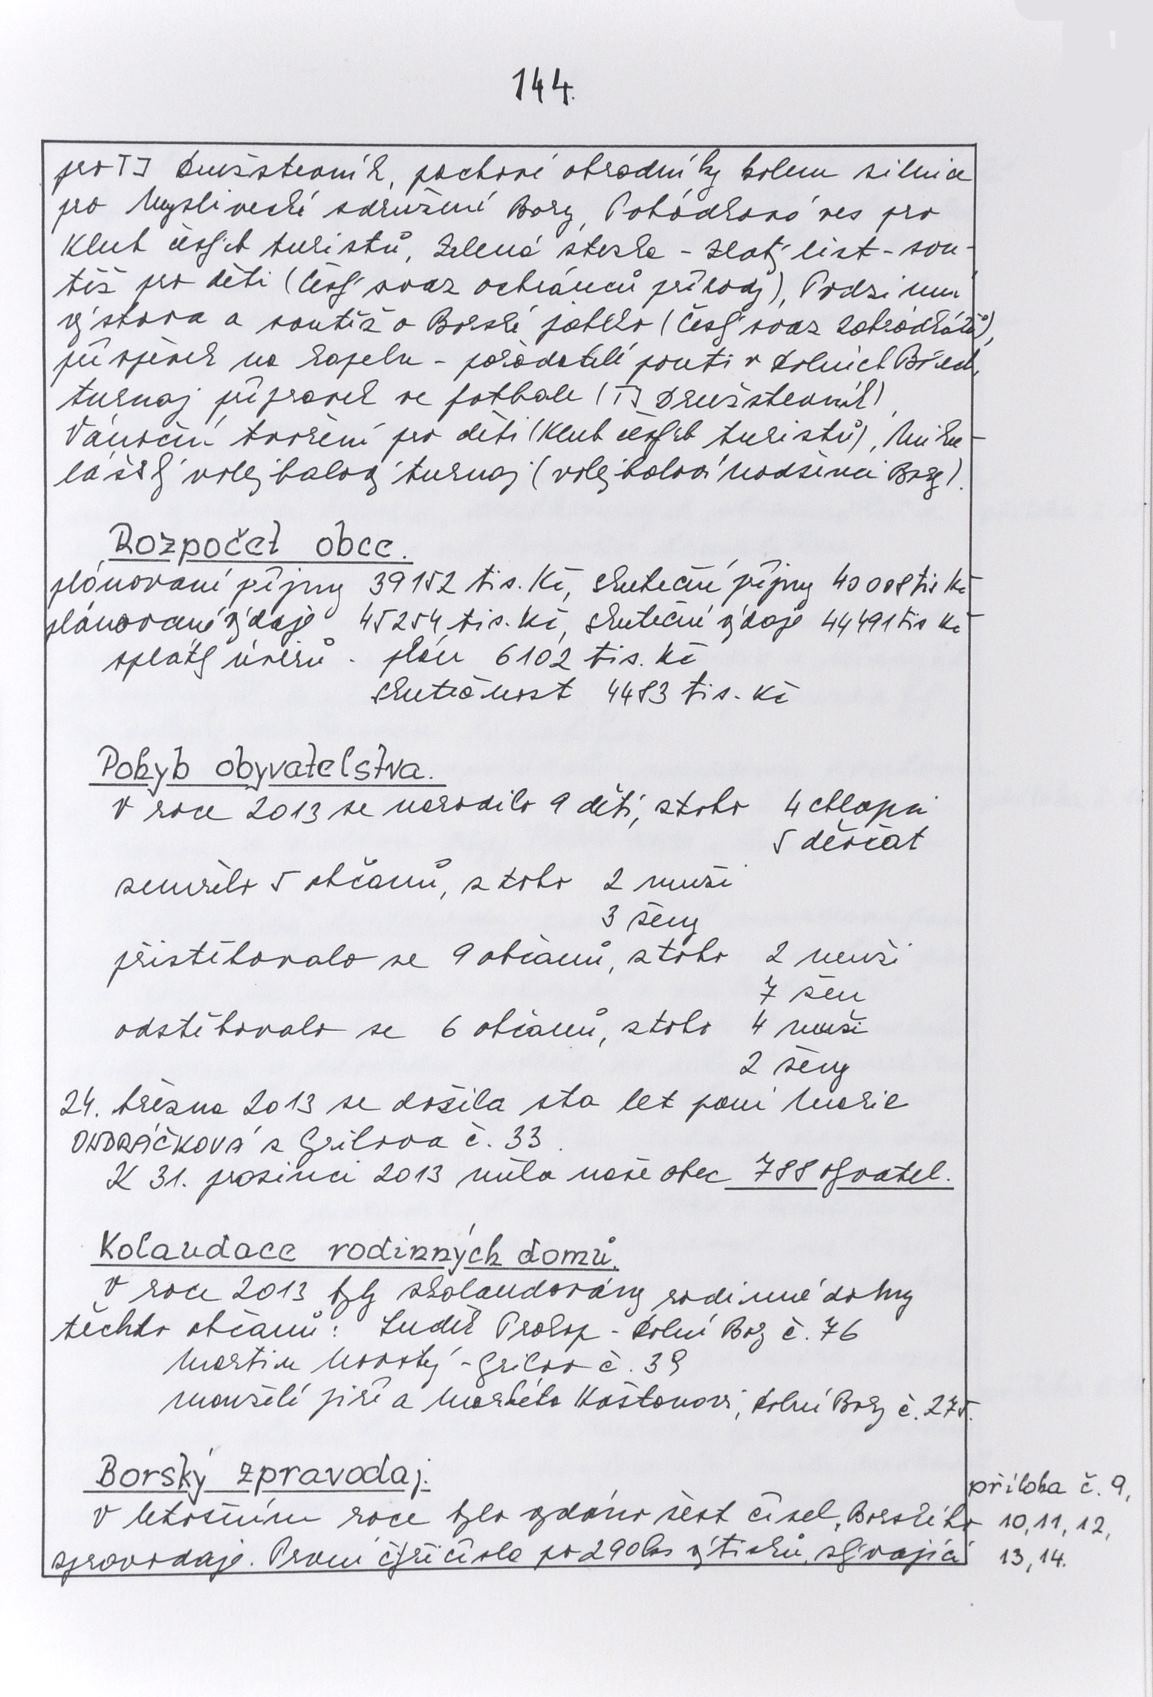 144.
pro TJ Družstevník, pachové ohradníky kolem silnice
pro Myslivecké sdružení Bory, Pohádková ves pro
Klub českých turistů, Zelená stezka - Zlatý list - sou-
těž pro děti (Český svaz ochránců přírody), Podzimní
výstava a soutěž o Borské jablko (Český svaz zahrádkářů),
příspěvek na kapelu - pořádání pouti v Dolních Borech,
turnaj přípravek ve fotbale (TJ Družstevník),
Vánoční tvoření pro děti (Klub českých turistů), Miku-
lášský volejbalový turnaj (volejbaloví nadšenci Bory).
Rozpočet obce.
plánované příjmy 39152 tis. Kč, skutečné příjmy 40008 tis Kč
plánované výdaje 45254 tis. Kč, skutečné výdaje 44491 tis Kč
splátky úvěrů - plán 6102 tis. Kč
skutečnost 4483 tis. Kč
Pohyb obyvatelstva.
V roce 2013 se narodilo 9 dětí, z toho 4 chlapci
5 děvčat
zemřelo 5 občanů, z toho 2 muži
3 ženy
přistěhovalo se 9 občanů, z toho 2 muži
7 žen
odstěhovalo se 6 občanů, z toho 4 muži
2 ženy
24. března 2013 se dožila sta let paní Marie
ONDRÁČKOVÁ z Cyrilova č. 33.
K 31. prosinci 2013 měla naše obec 788 obyvatel.
Kolaudace rodinných domů.
V roce 2013 byly zkolaudovány rodinné domy
těchto občanů: Luděk Prokop - Dolní Bory č. 76
Martin Novotný - Cyrilov č. 39
manželé Jiří a Markéta Koštonovi, Dolní Bory č. 275.
Borský zpravodaj.
V letošním roce bylo vydáno šest čísel, Borského
zpravodaje. První čtyři čísla po 290 ks výtisků, zbývající
příloha č. 9,
10, 11, 12,
13, 14.